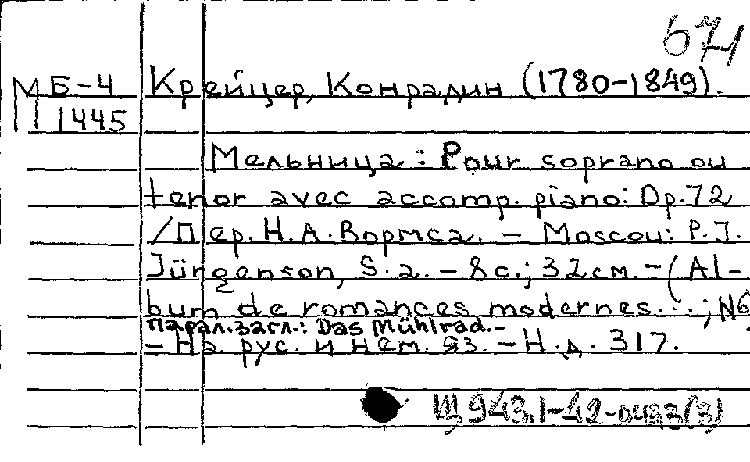 671
М Б-4 Крейцер, Конрадин (1780-1849).
1445
Мельница: Pour soprano ou
tenor avec accomp. piano: Op. 72
/Пер. Н.А. Вормса. - Moscou: P.J.
Jürgenson, S.a. - 8с.; 32см. - (Al-
bum de romances modernes...; №6
Парал. загл.: Das Mühlrad. -
- На рус. и нем. яз. - Н.д. 317.
Щ943.1-42-